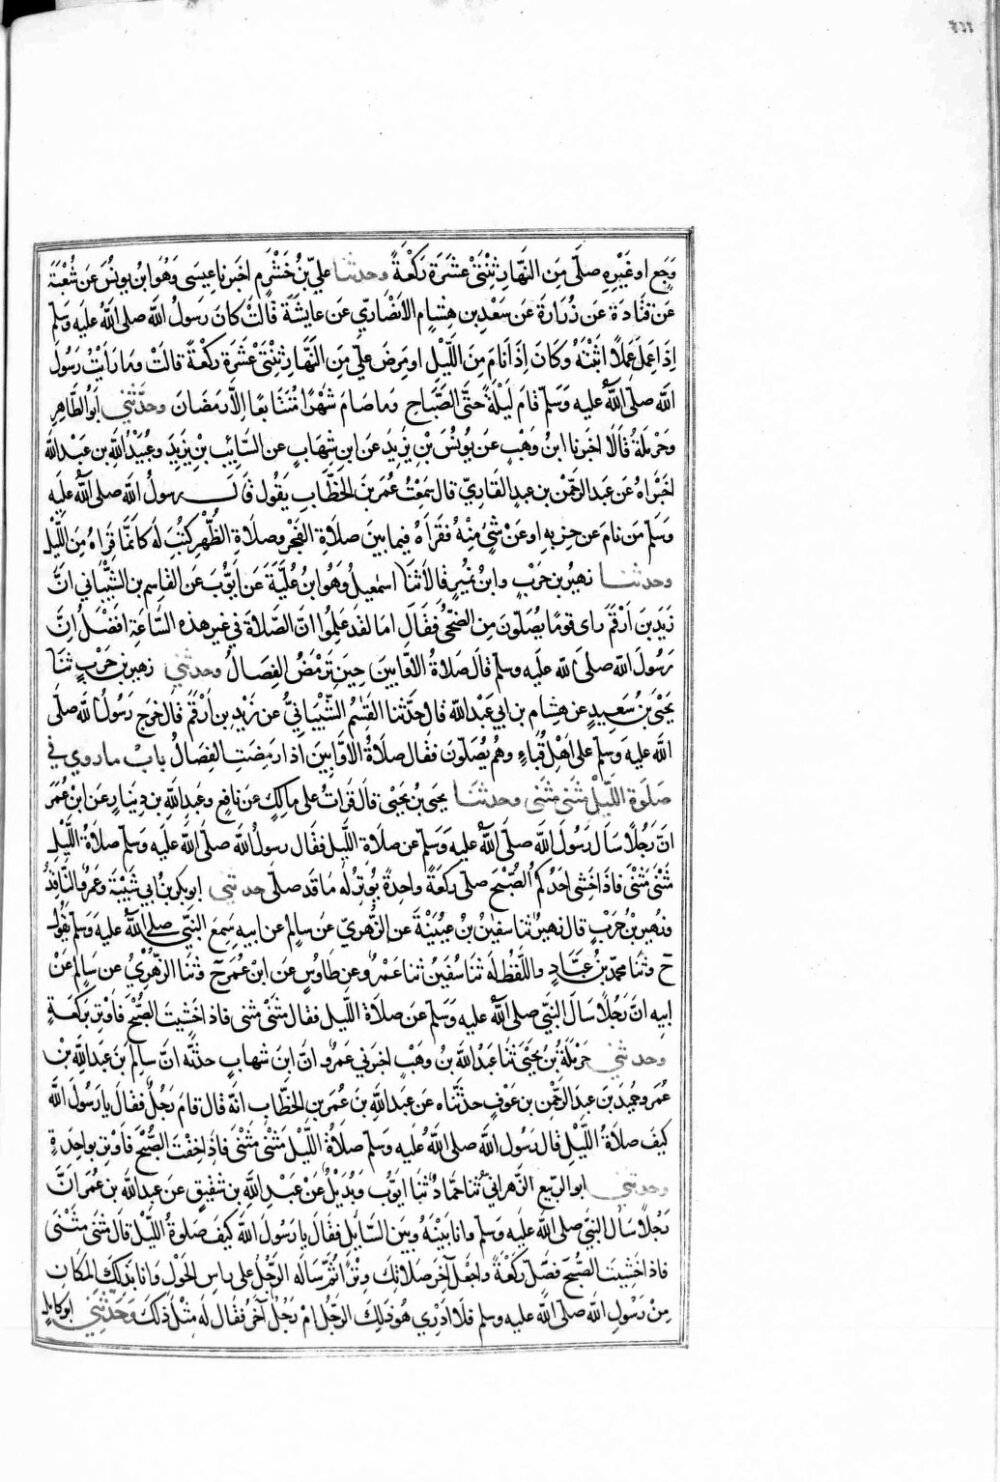 وجع او غيره صلى من النهار ثنتى عشرة ركعة وحدثنا علي بن خشرم اخبرنا عيسى وهو ابن يونس عن شعبة
عن قتادة عن زرارة عن سعد بن هشام الانصاري عن عايشة قالت كان رسول الله صلى الله عليه وسلم
اذا عمل عملا اثبته وكان اذا نام من الليل او مرض صلي من النهار ثنتى عشرة ركعة قالت وما رايت رسول
الله صلى الله عليه وسلم قام ليلة حتى الصباح وما صام شهرا متتابعا الا رمضان وحدثني ابو الطاهر
وحرملة قالا اخبرنا ابن وهب عن يونس بن يزيد عن ابن شهاب عن السايب بن يزيد وعبيد الله بن عبد الله
اخبراه عن عبد الرحمن بن عبد القاري قال سمعت عمر بن الخطاب يقول قال رسول الله صلى الله عليه
وسلم من نام عن حزبه او عن شئ منه فقراه فيما بين صلاة الفجر وصلاة الظهر كتب له كانما قراه من الليل
وحدثنا زهير بن حرب وابن نمير قالا ثنا اسمعيل وهو ابن علية عن ايوب عن القاسم بن الشيباني ان
زيد بن ارقم راى قوما يصلون من الضحى فقال اما لقد علموا ان الصلاة في غير هذه الساعة افضل ان
رسول الله صلى الله عليه وسلم قال صلاة الاوابين حين ترمض الفصال وحدثني زهير بن حرب ثنا
يحيى بن سعيد عن هشام بن ابي عبد الله قال حدثنا القسم الشيباني عن زيد بن ارقم قال خرج رسول الله صلى
الله عليه وسلم على اهل قباء وهم يصلون فقال صلاة الاوابين اذا رمضت الفصال باب ما روي في
صلوة الليل مثنى مثنى وحدثنا يحيى بن يحيى قال قرات على مالك عن نافع وعبد الله بن دينار عن ابن عمر
ان رجلا سال رسول الله صلى الله عليه وسلم عن صلاة الليل فقال رسول الله صلى الله عليه وسلم صلاة الليل
مثنى مثنى فاذا خشى احدكم الصبح صلى ركعة واحدة يوتر له ما قد صلى حدثني ابو بكر بن ابي شيبة وعمرو الناقد
وزهير بن حرب قال زهير ثنا سفين بن عيينة عن الزهري عن سالم عن ابيه سمع النبي صلى الله عليه وسلم يقول
ح وثنا محمد بن عباد واللفظ له ثنا سفين ثنا عمرو عن طاوس عن ابن عمر ح وثنا الزهري عن سالم عن
ابيه ان رجلا سال النبي صلى الله عليه وسلم عن صلاة الليل فقال مثنى مثنى فاذا خشيت الصبح فاوتر بركعة
وحدثني حرملة بن يحيى ثنا عبد الله بن وهب اخبرني عمرو ان ابن شهاب حدثه ان سالم بن عبد الله بن
عمر وحميد بن عبد الرحمن بن عوف حدثاه عن عبد الله بن عمر بن الخطاب انه قال قام رجل فقال يا رسول الله
كيف صلاة الليل قال رسول الله صلى الله عليه وسلم صلاة الليل مثنى مثنى فاذا خفت الصبح فاوتر بواحدة
وحدثني ابو الربيع الزهراني ثنا حماد ثنا ايوب وبديل عن عبد الله بن شقيق عن عبد الله بن عمر ان
رجلا سال النبي صلى الله عليه وسلم وانا بينه وبين السايل فقال يا رسول الله كيف صلوة الليل قال مثنى مثنى
فاذا خشيت الصبح فصل ركعة واجعل آخر صلاتك وترا ثم ساله الرجل على راس الحول وانا بذلك المكان
من رسول الله صلى الله عليه وسلم فلا ادري هو ذلك الرجل ام رجل آخر فقال له مثل ذلك وحدثني ابو كامل